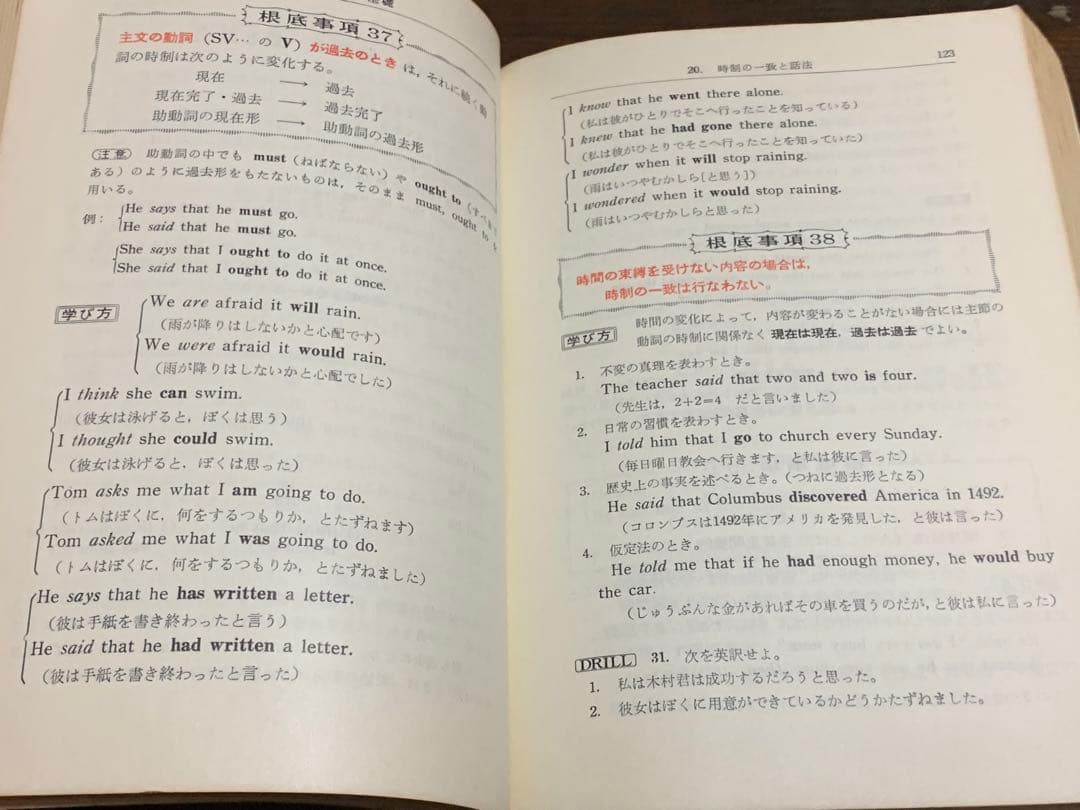 基礎
根底事項 37
主文の動詞 (SV… の V) が過去のとき は, それに続く動
詞の時制は次のように変化する。
現在 ⟶ 過去
現在完了・過去 ⟶ 過去完了
助動詞の現在形 ⟶ 助動詞の過去形
注意 助動詞の中でも must (ねばならない) や ought to (すべきで
ある) のように過去形をもたないものは, そのまま must, ought to を
用いる。
例: He says that he must go.
He said that he must go.
She says that I ought to do it at once.
She said that I ought to do it at once.
学び方 We are afraid it will rain.
(雨が降りはしないかと心配です)
We were afraid it would rain.
(雨が降りはしないかと心配でした)
I think she can swim.
(彼女は泳げると, ぼくは思う)
I thought she could swim.
(彼女は泳げると, ぼくは思った)
Tom asks me what I am going to do.
(トムはぼくに, 何をするつもりか, とたずねます)
Tom asked me what I was going to do.
(トムはぼくに, 何をするつもりか, とたずねました)
He says that he has written a letter.
(彼は手紙を書き終わったと言う)
He said that he had written a letter.
(彼は手紙を書き終わったと言った)
20. 時制の一致と話法 123
I know that he went there alone.
(私は彼がひとりでそこへ行ったことを知っている)
I knew that he had gone there alone.
(私は彼がひとりでそこへ行ったことを知っていた)
I wonder when it will stop raining.
(雨はいつやむかしら[と思う])
I wondered when it would stop raining.
(雨はいつやむかしらと思った)
根底事項 38
時間の束縛を受けない内容の場合は,
時制の一致は行なわない。
学び方 時間の変化によって, 内容が変わることがない場合には主節の
動詞の時制に関係なく 現在は現在, 過去は過去 でよい。
1. 不変の真理を表わすとき。
The teacher said that two and two is four.
(先生は, 2+2=4 だと言いました)
2. 日常の習慣を表わすとき。
I told him that I go to church every Sunday.
(毎日曜日教会へ行きます, と私は彼に言った)
3. 歴史上の事実を述べるとき。(つねに過去形となる)
He said that Columbus discovered America in 1492.
(コロンブスは1492年にアメリカを発見した, と彼は言った)
4. 仮定法のとき。
He told me that if he had enough money, he would buy
the car.
(じゅうぶんな金があればその車を買うのだが, と彼は私に言った)
DRILL 31. 次を英訳せよ。
1. 私は木村君は成功するだろうと思った。
2. 彼女はぼくに用意ができているかどうかたずねました。